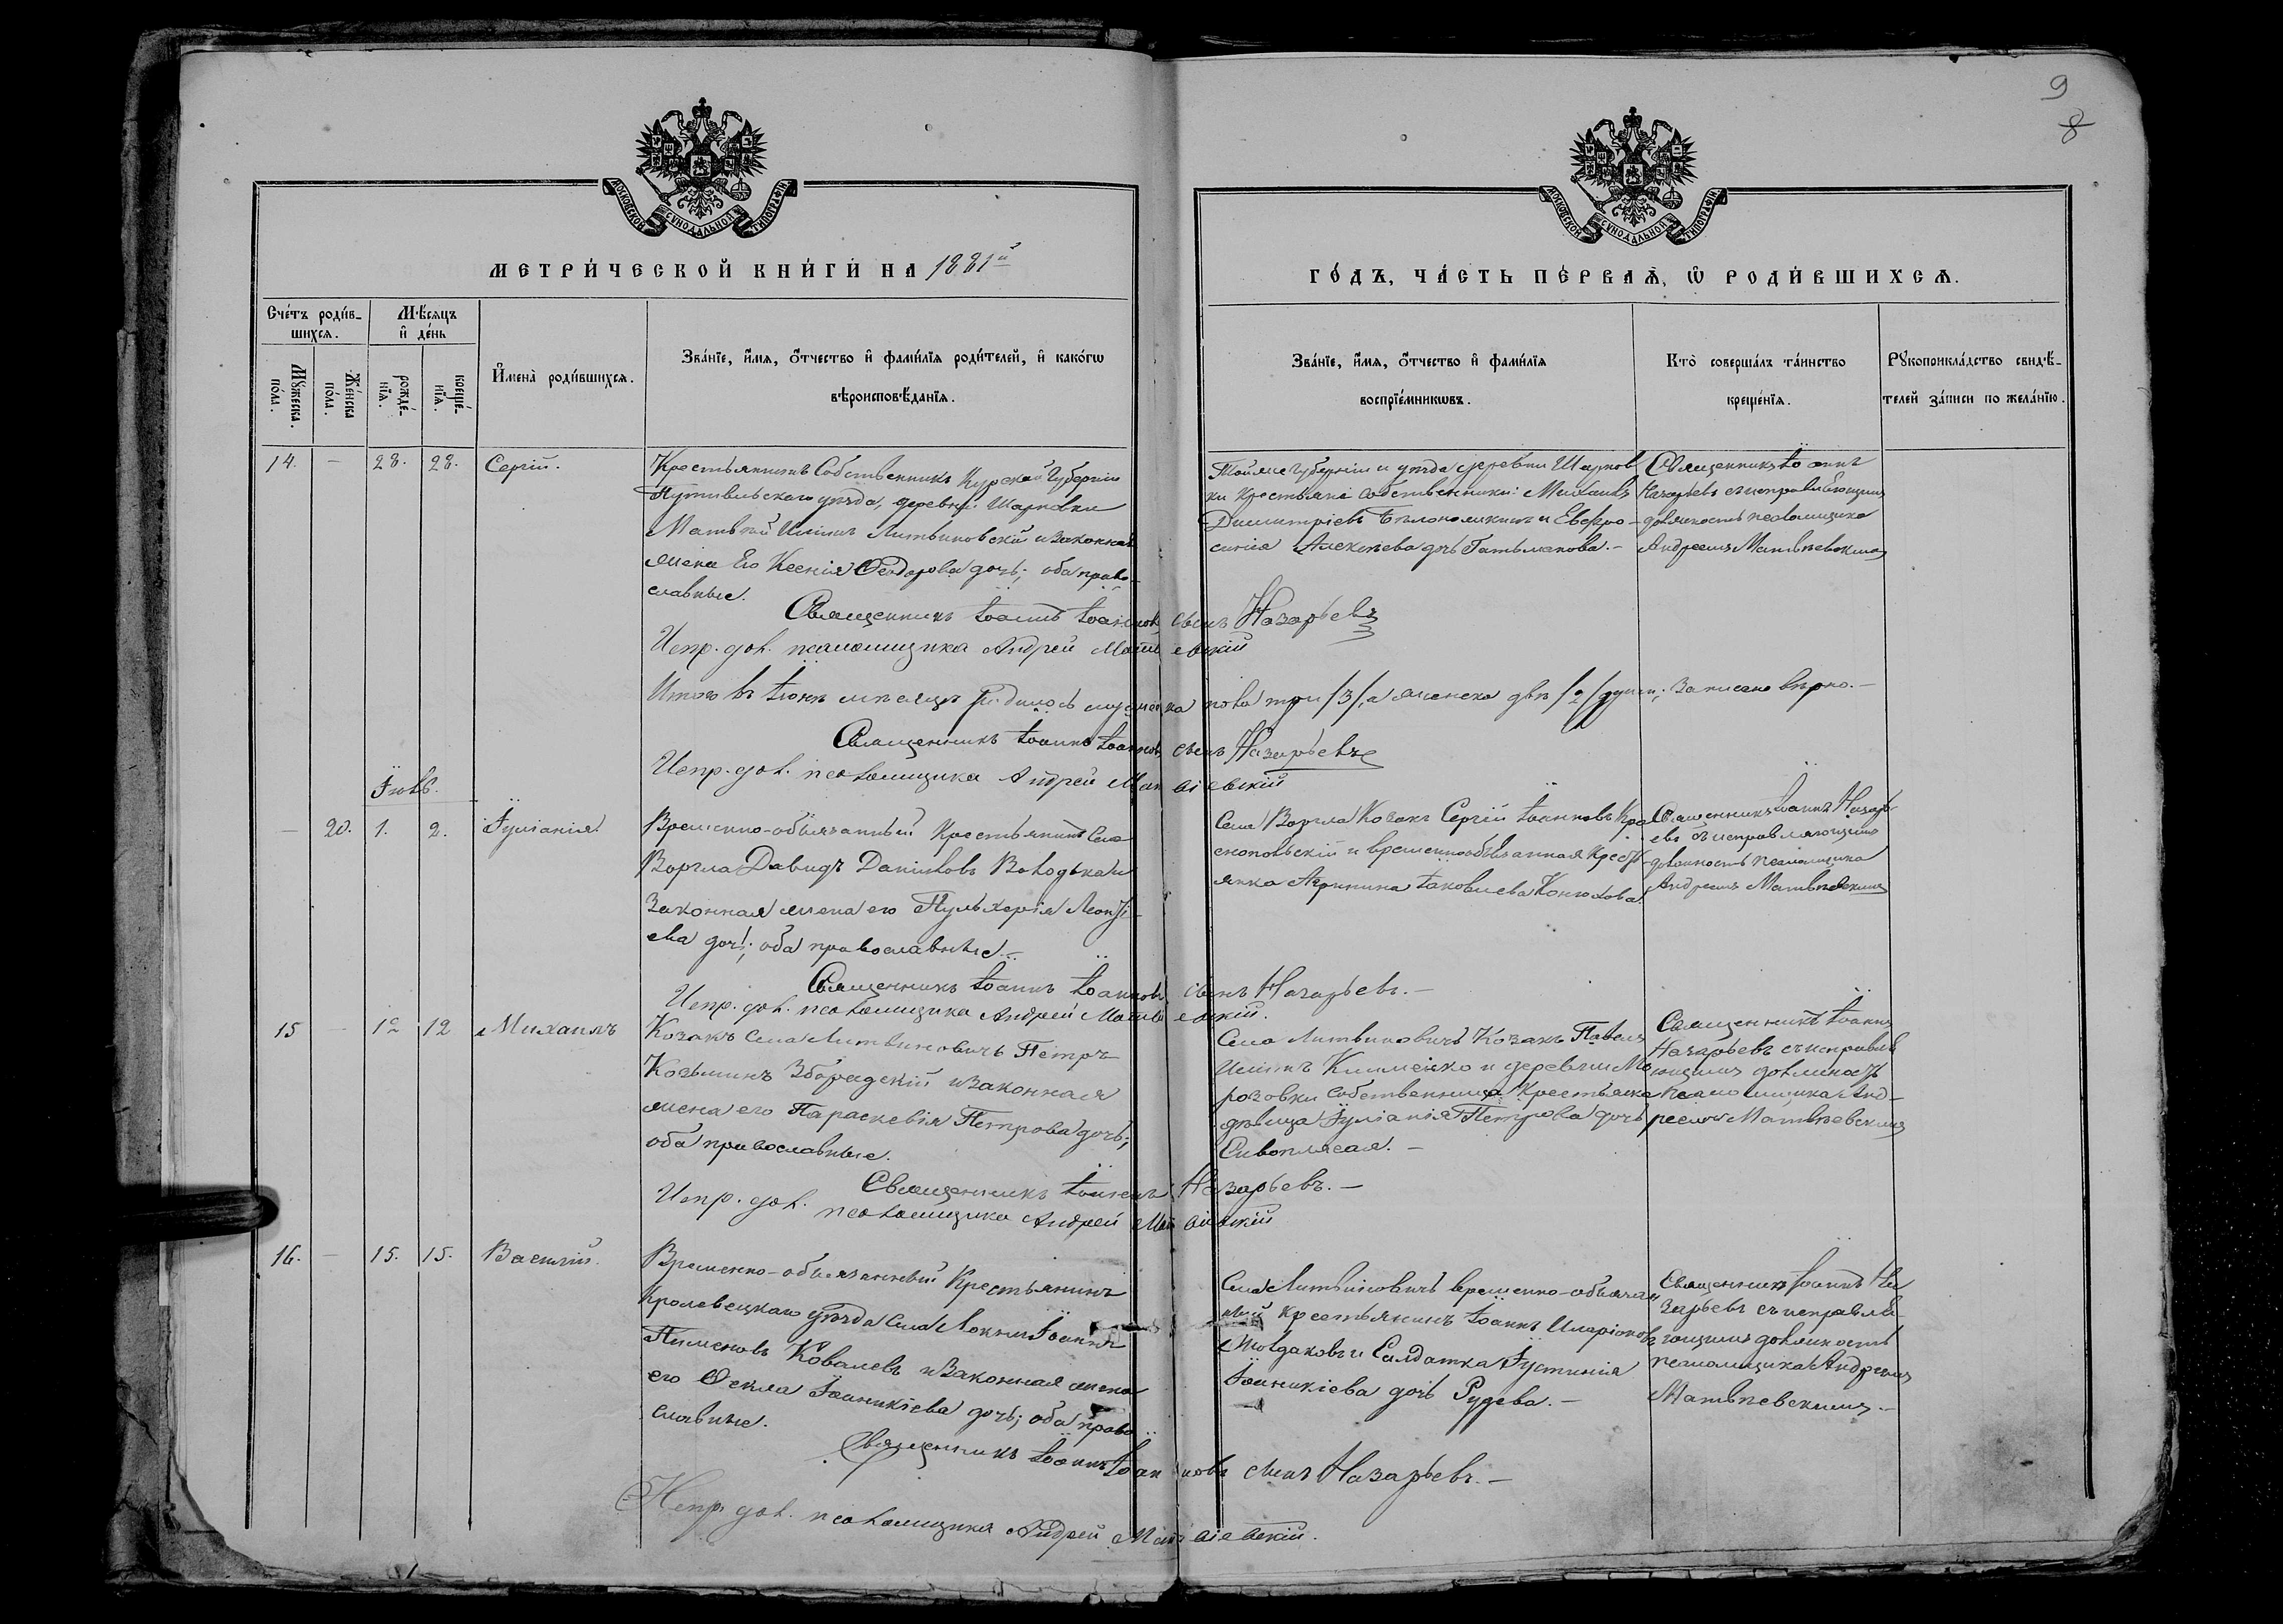 9
8
МОСКОВСКОЙ СѴНОДАЛЬНОЙ ТИПОГРАФІИ
МОСКОВСКОЙ СѴНОДАЛЬНОЙ ТИПОГРАФІИ
МЕТРИ́ЧЕСКОЙ КНИ́ГИ НА 1881й
ГО́ДЪ, ЧА́СТЬ ПЕ́РВАЯ, Ѡ РОДИ́ВШИХСЯ.
Сче́тъ роди́в-
шихся.
Мѣсяцъ
и де́нь
Му́жеска по́ла.
Же́нска по́ла.
рожде́-
нїя.
креще́-
нїя.
Имена̀ роди́вшихся.
Зва́нїе, и́мя, о́тчество и фами́лїя роди́телей, и како́гѡ
вѣроисповѣ́данїя.
Зва́нїе, и́мя, о́тчество и фами́лїя
воспрїе́мникѡвъ.
Кто̀ соверша́лъ та́инство
креще́нїя.
Рукоприкла́дство свидѣ́-
телей за́писи по жела́нїю.
14. — 28. 28. Сергій.
Крестьянинъ Собственникъ Курской Губерніи
Путивльскаго уѣзда, деревни Шарповки
Матвѣй Литвиновскій и законная
жена Его Ксенія Ѳеодорова дочь; оба право-
славные.
Тойже Губерніи и уѣзда деревни Шарпов
ки крестьяне собственники: Михаилъ
Димитріевъ и Евфро-
синія Алексѣева дочь Гатьманова. —
Священникъ Іоаннъ
Назарьевъ съ исправляющимъ
должность псаломщика
Андреемъ Матвѣевскимъ
Священникъ Іоаннъ Іоанновъ сынъ Назарьевъ
Испр. дол. псаломщика Андрей Матвіевскій
Итого въ Іюнѣ мѣсяцѣ родилось мужеска пола три /3/, а женска двѣ /2/ души; Записано вѣрно. —
Священникъ Іоаннъ Іоанновъ сынъ Назарьевъ
Испр. дол. псаломщика Андрей Матвіевскій
Іюль.
— 20. 1. 2. Іуліанія.
Временно-обязанный Крестьянинъ Села
Воргла Давидъ Даніиловъ Володька и
Законная жена его Пульхерія Леонті-
ева дочь; оба православные. —
Села Воргла Козакъ Сергій Іоанновъ Кра
снопольскій и временнообязанная Кресть-
янка Агрипина Іаковлева Конюхова
Священникъ Іоаннъ Назарь-
евъ съ исправляющимъ
должность псаломщика
Андреемъ Матвѣевскимъ
Священникъ Іоаннъ Іоанновъ сынъ Назарьевъ. —
Испр. дол. псаломщика Андрей Матвіевскій.
15 — 12 12 Михаилъ
Козакъ Села Литвиновичъ Петръ
Козьминъ и законная
жена его Параскевія Петрова дочь;
оба православные.
Села Литвиновичъ Козакъ Павелъ
и деревни Мо
розовки Собственница Крестьянка
дѣвица Іуліанія Петрова дочь
Сивоплясая. —
Священникъ Іоаннъ
Назарьевъ съ исправля
ющимъ должность
псаломщика Анд-
реемъ Матвѣевскимъ
Священникъ Іоаннъ Назарьевъ. —
Испр. дол. псаломщика Андрей Матвіевскій
16. — 15. 15. Василій.
Временно-обязанный Крестьянинъ
Кролевецкаго уѣзда Села Локни Іоаннъ
Пименовъ Ковалевъ и Законная жена
его Ѳекла Іоанникіева дочь; оба право
славные.
Села Литвиновичъ временно-обязан
ный крестьянинъ Іоаннъ Иларіоновъ
Жолдаковъ и Солдатка Іустинія
Іоанникіева дочь Рудева. —
Священникъ Іоаннъ На
зарьевъ съ исправля-
ющимъ должность
псаломщика Андреемъ
Матвѣевскимъ. —
Священникъ Іоаннъ Іоанновъ сынъ Назарьевъ. —
Испр. дол. псаломщика Андрей Матвіевскій.